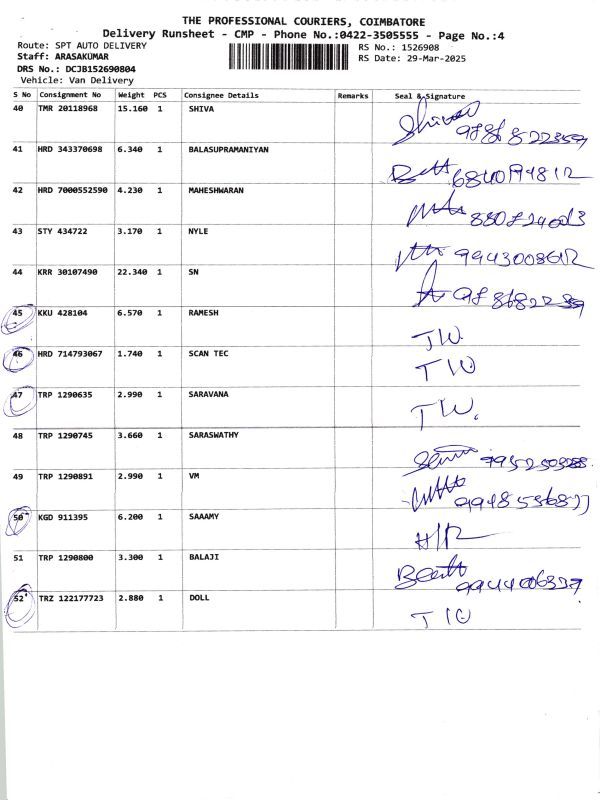 THE PROFESSIONAL COURIERS, COIMBATORE
Delivery Runsheet - CMP - Phone No.:0422-3505555 - Page No.:4
Route: SPT AUTO DELIVERY RS No.: 1526908
Staff: ARASAKUMAR RS Date: 29-Mar-2025
DRS No.: DCJB152690804
Vehicle: Van Delivery
S No Consignment No Weight PCS Consignee Details Remarks Seal & Signature
40 TMR 20118968 15.160 1 SHIVA
41 HRD 343370698 6.340 1 BALASUPRAMANIYAN
42 HRD 7000552590 4.230 1 MAHESHWARAN
43 STY 434722 3.170 1 NYLE 9943008612
44 KRR 30107490 22.340 1 SN
45 KKU 428104 6.570 1 RAMESH TW.
46 HRD 714793067 1.740 1 SCAN TEC TW
47 TRP 1290635 2.990 1 SARAVANA TW.
48 TRP 1290745 3.660 1 SARASWATHY
49 TRP 1290891 2.990 1 VM
50 KGD 911395 6.200 1 SAAAMY
51 TRP 1290800 3.300 1 BALAJI
52 TRZ 122177723 2.880 1 DOLL TW